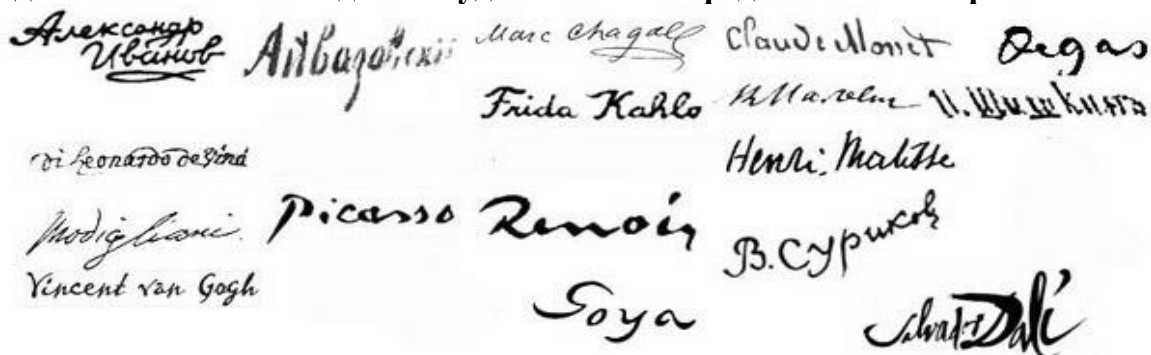 Александр
Иванов
Айвазовский
Marc Chagall
Claude Monet
Degas
Frida Kahlo
И. Шишкинъ
Henri. Matisse
Modigliani
Picasso
Renoir
В. Суриков
Vincent van Gogh
Goya
Salvador Dalí